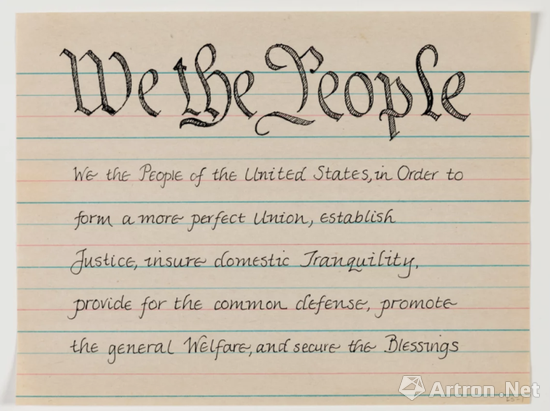 We the People
We the People of the United States, in Order to
form a more perfect Union, establish
Justice, insure domestic Tranquility,
provide for the common defense, promote
the general Welfare, and secure the Blessings
Artron.Net